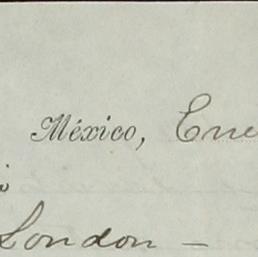 México, Ene
London –